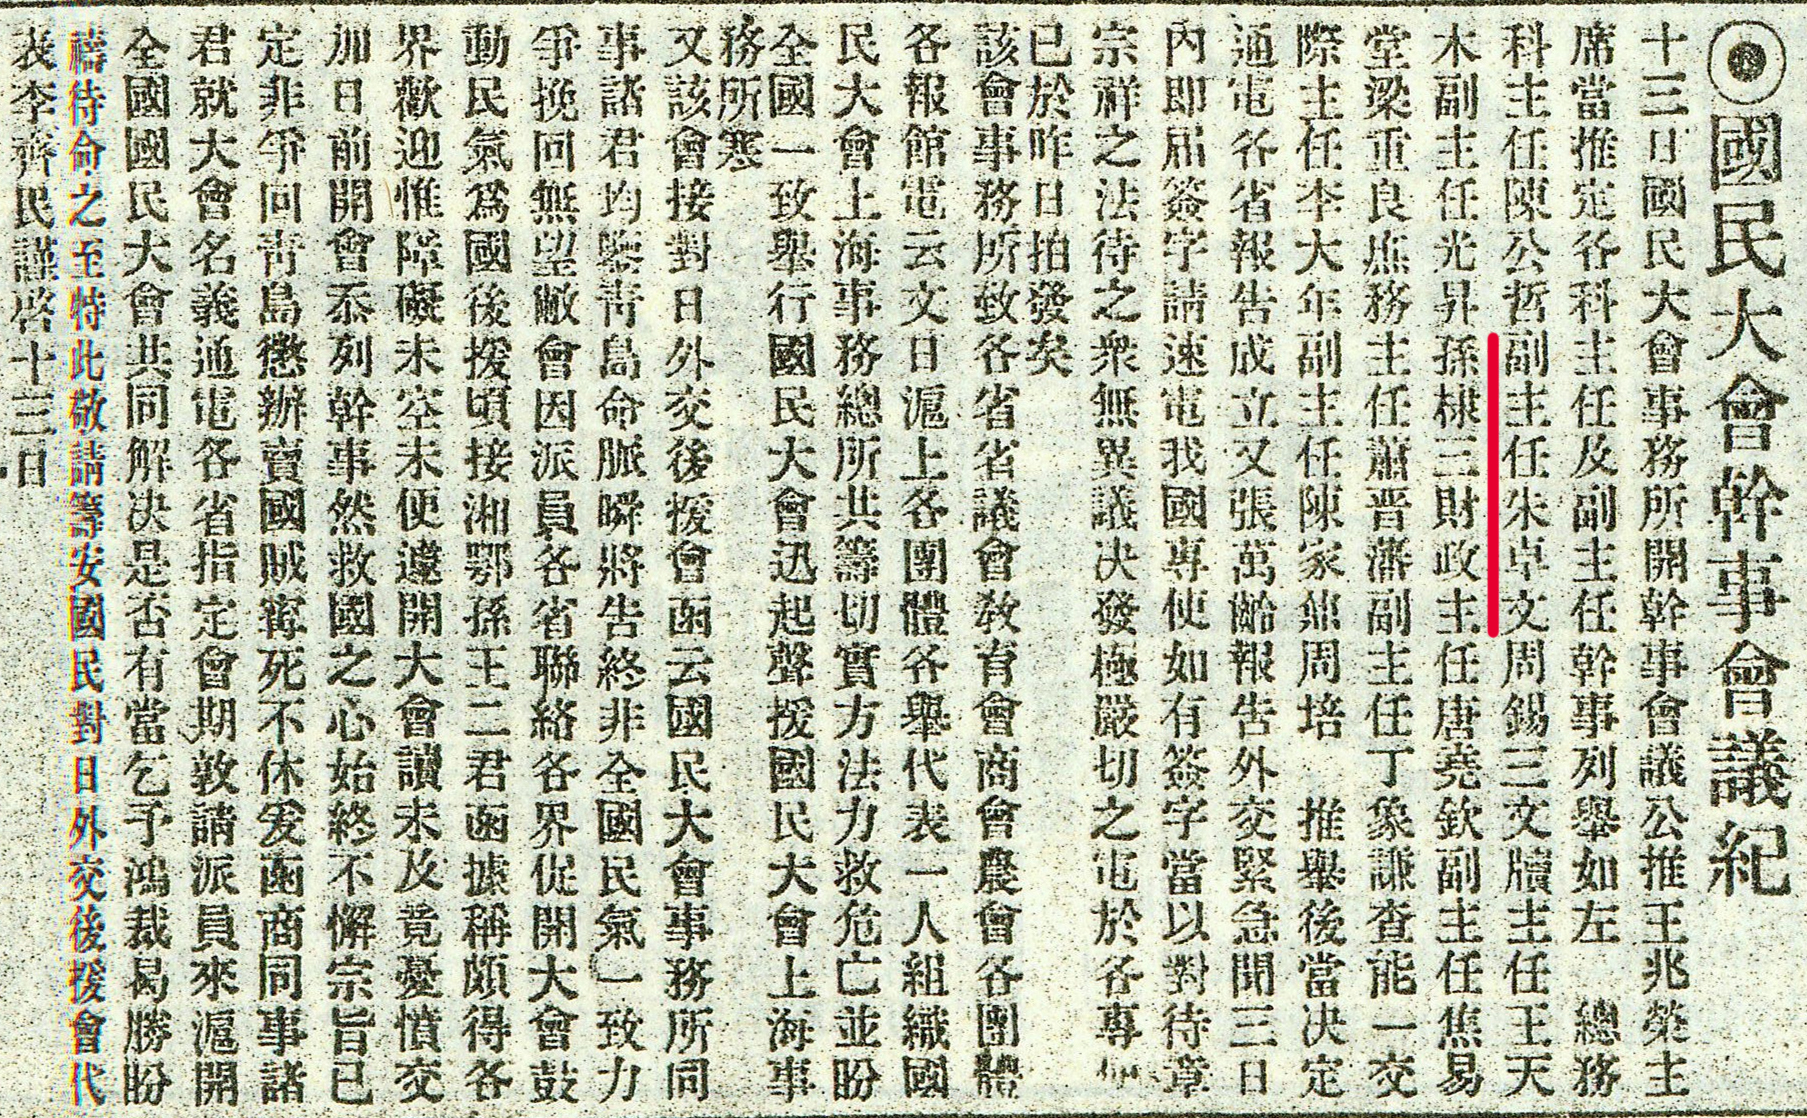 國民大會幹事會議紀
十三日國民大會事務所開幹事會議公推王兆榮主
席當推定各科主任及副主任幹事列舉如左 總務
科主任陳公哲副主任朱卓文周錫三文牘主任王天
木副主任光昇孫棣三財政主任唐堯欽副主任焦易
堂梁重良庶務主任蕭晋藩副主任丁象謙查能一交
際主任李大年副主任陳家鼐周培 推舉後當決定
通電各省報告成立又張萬齡報告外交緊急聞三日
內即屆簽字請速電我國專使如有簽字當以對待章
宗祥之法待之衆無異議决發極嚴切之電於各專
已於昨日拍發矣
該會事務所致各省省議會教育會商會農會各團體
各報館電云文日滬上各團體各舉代表一人組織國
民大會上海事務總所共籌切實方法力救危亡並盼
全國一致舉行國民大會迅起聲援國民大會上海事
務所寒
又該會接對日外交後援會函云國民大會事務所同
事諸君均鑒靑島命脈瞬將告終非全國民氣一致力
爭挽回無望敝會因派員各省聯絡各界促開大會鼓
動民氣爲國後援頃接湘鄂孫王二君函據稱頗得各
界歡迎惟障礙未空未便遽開大會讀未及竟憂憤交
加日前開會忝列幹事然救國之心始終不懈宗旨已
定非爭回靑島懲辦賣國賊寗死不休爰函商同事諸
君就大會名義通電各省指定會期敦請派員來滬開
全國國民大會共同解决是否有當乞予鴻裁曷勝盼
禱待命之至特此敬請籌安國民對日外交後援會代
表李齊民謹啓十三日